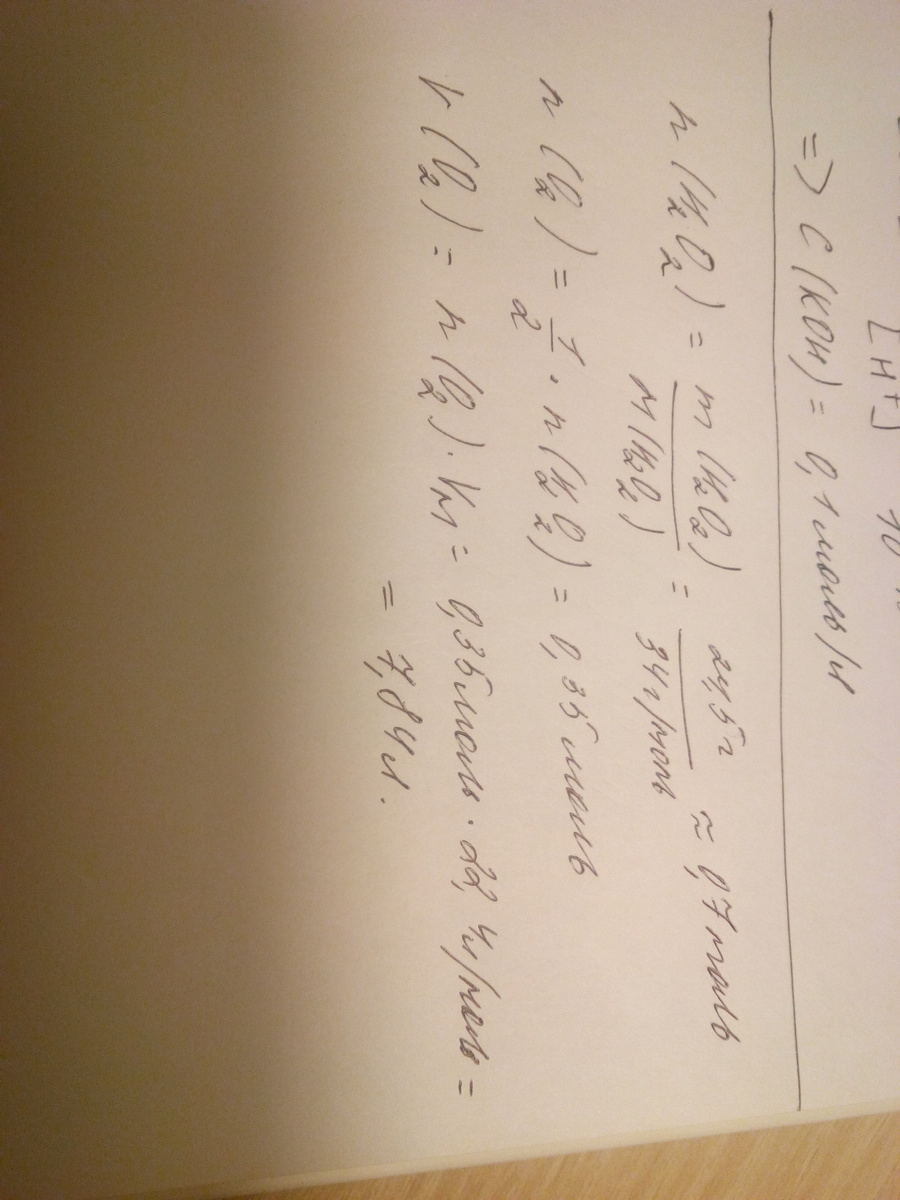 [H+] 10
=> C(KOH) = 0,1 моль/л
n(H2O2) = m(H2O2) / M(H2O2) = 24,5г / 34г/моль ≈ 0,7 моль
n(O2) = 1/2 · n(H2O2) = 0,35 моль
V(O2) = n(O2) · Vm = 0,35 моль · 22,4 л/моль =
= 7,84 л.